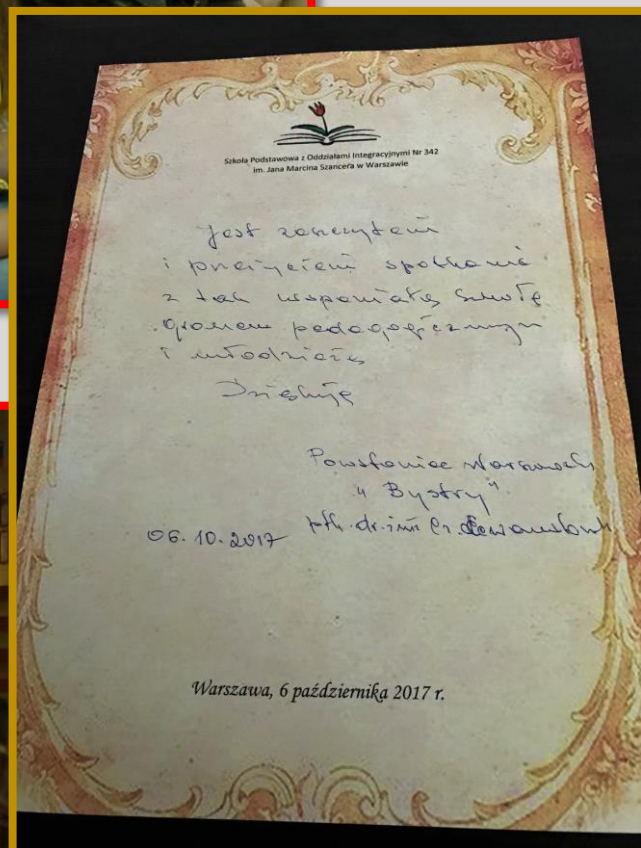 Szkoła Podstawowa z Oddziałami Integracyjnymi Nr 342
im. Jana Marcina Szancera w Warszawie
Jest zaszczytem
i przeżyciem spotkanie
z tak wspaniałą szkołą
gronem pedagogicznym
i młodzieżą
Dziękuję
Powstaniec Warszawski
"Bystry"
06.10.2017 płk. dr. inż. Cz. Lewandowski
Warszawa, 6 października 2017 r.